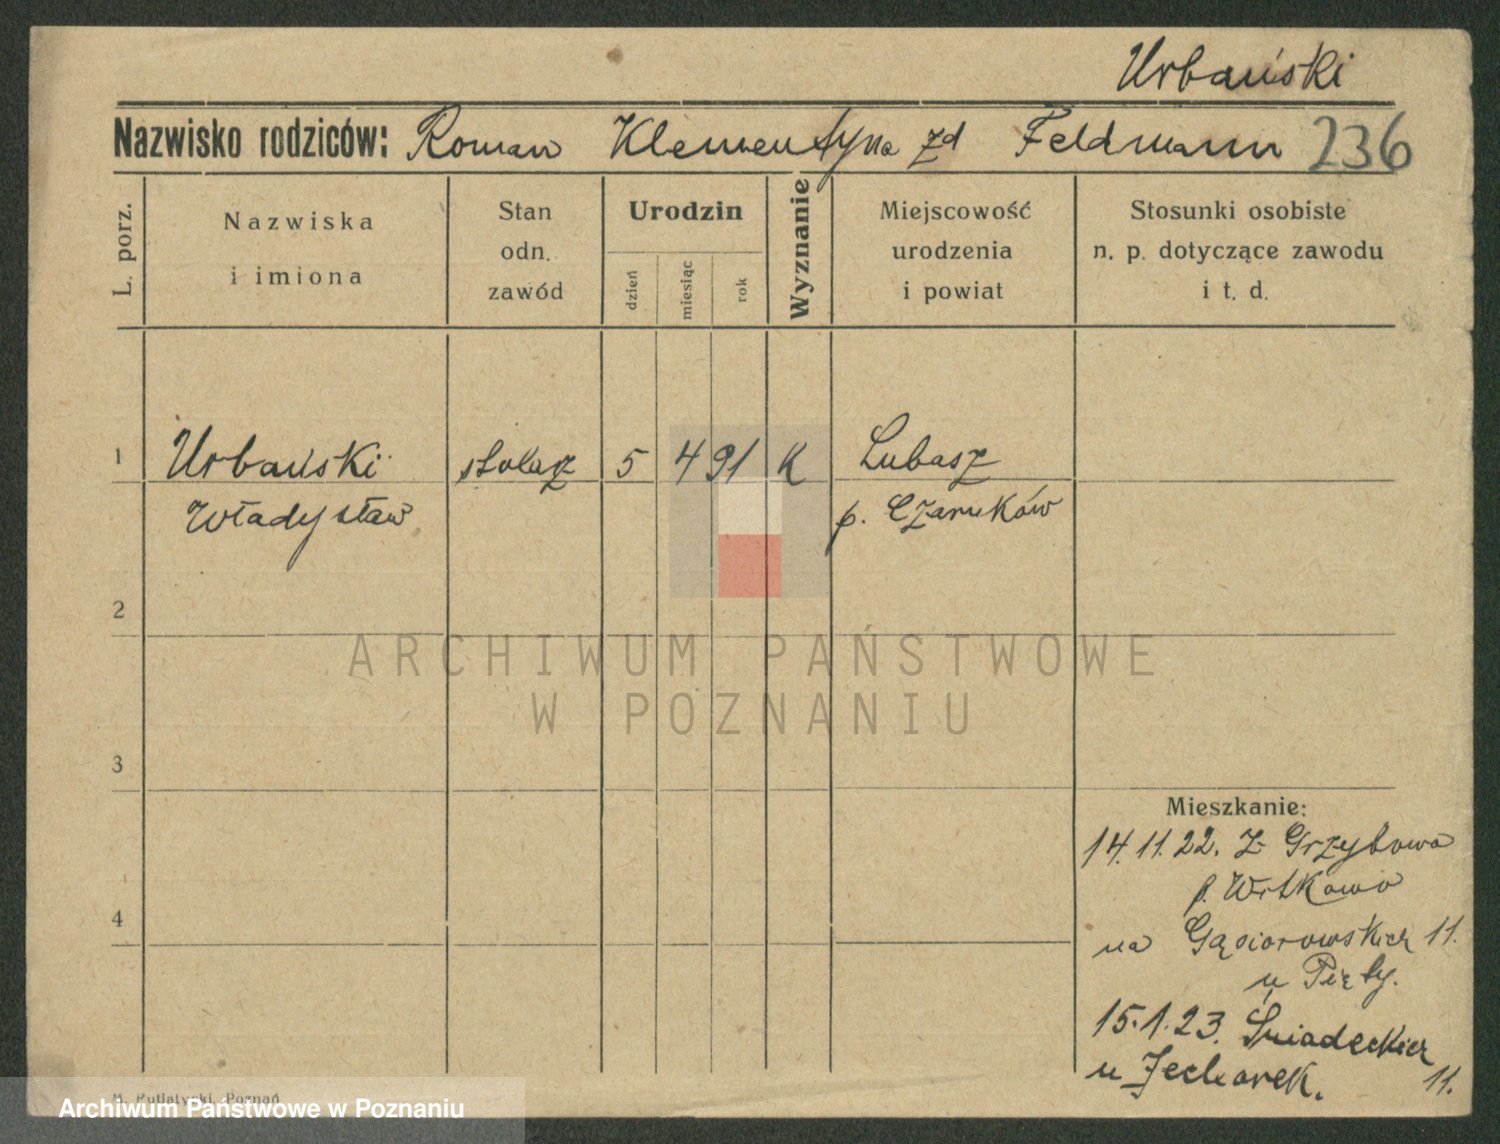 Urbański
Nazwisko rodziców: Roman Klementyna zd Feldmann 236
L. porz.
Nazwiska
i imiona
Stan
odn.
zawód
Urodzin
dzień
miesiąc
rok
Wyznanie
Miejscowość
urodzenia
i powiat
Stosunki osobiste
n. p. dotyczące zawodu
i t. d.
1 Urbański stolarz 5 4 91 K Lubasz
Władysław p. Czarnków
2
ARCHIWUM PAŃSTWOWE
W POZNANIU
3
Mieszkanie:
14.11.22. z Grzybowa
p. Witkowo
4
na Gąsiorowskich 11.
u Pięty.
15.1.23. Śniadeckich
u 11.
M. Putiatycki, Poznań
Archiwum Państwowe w Poznaniu